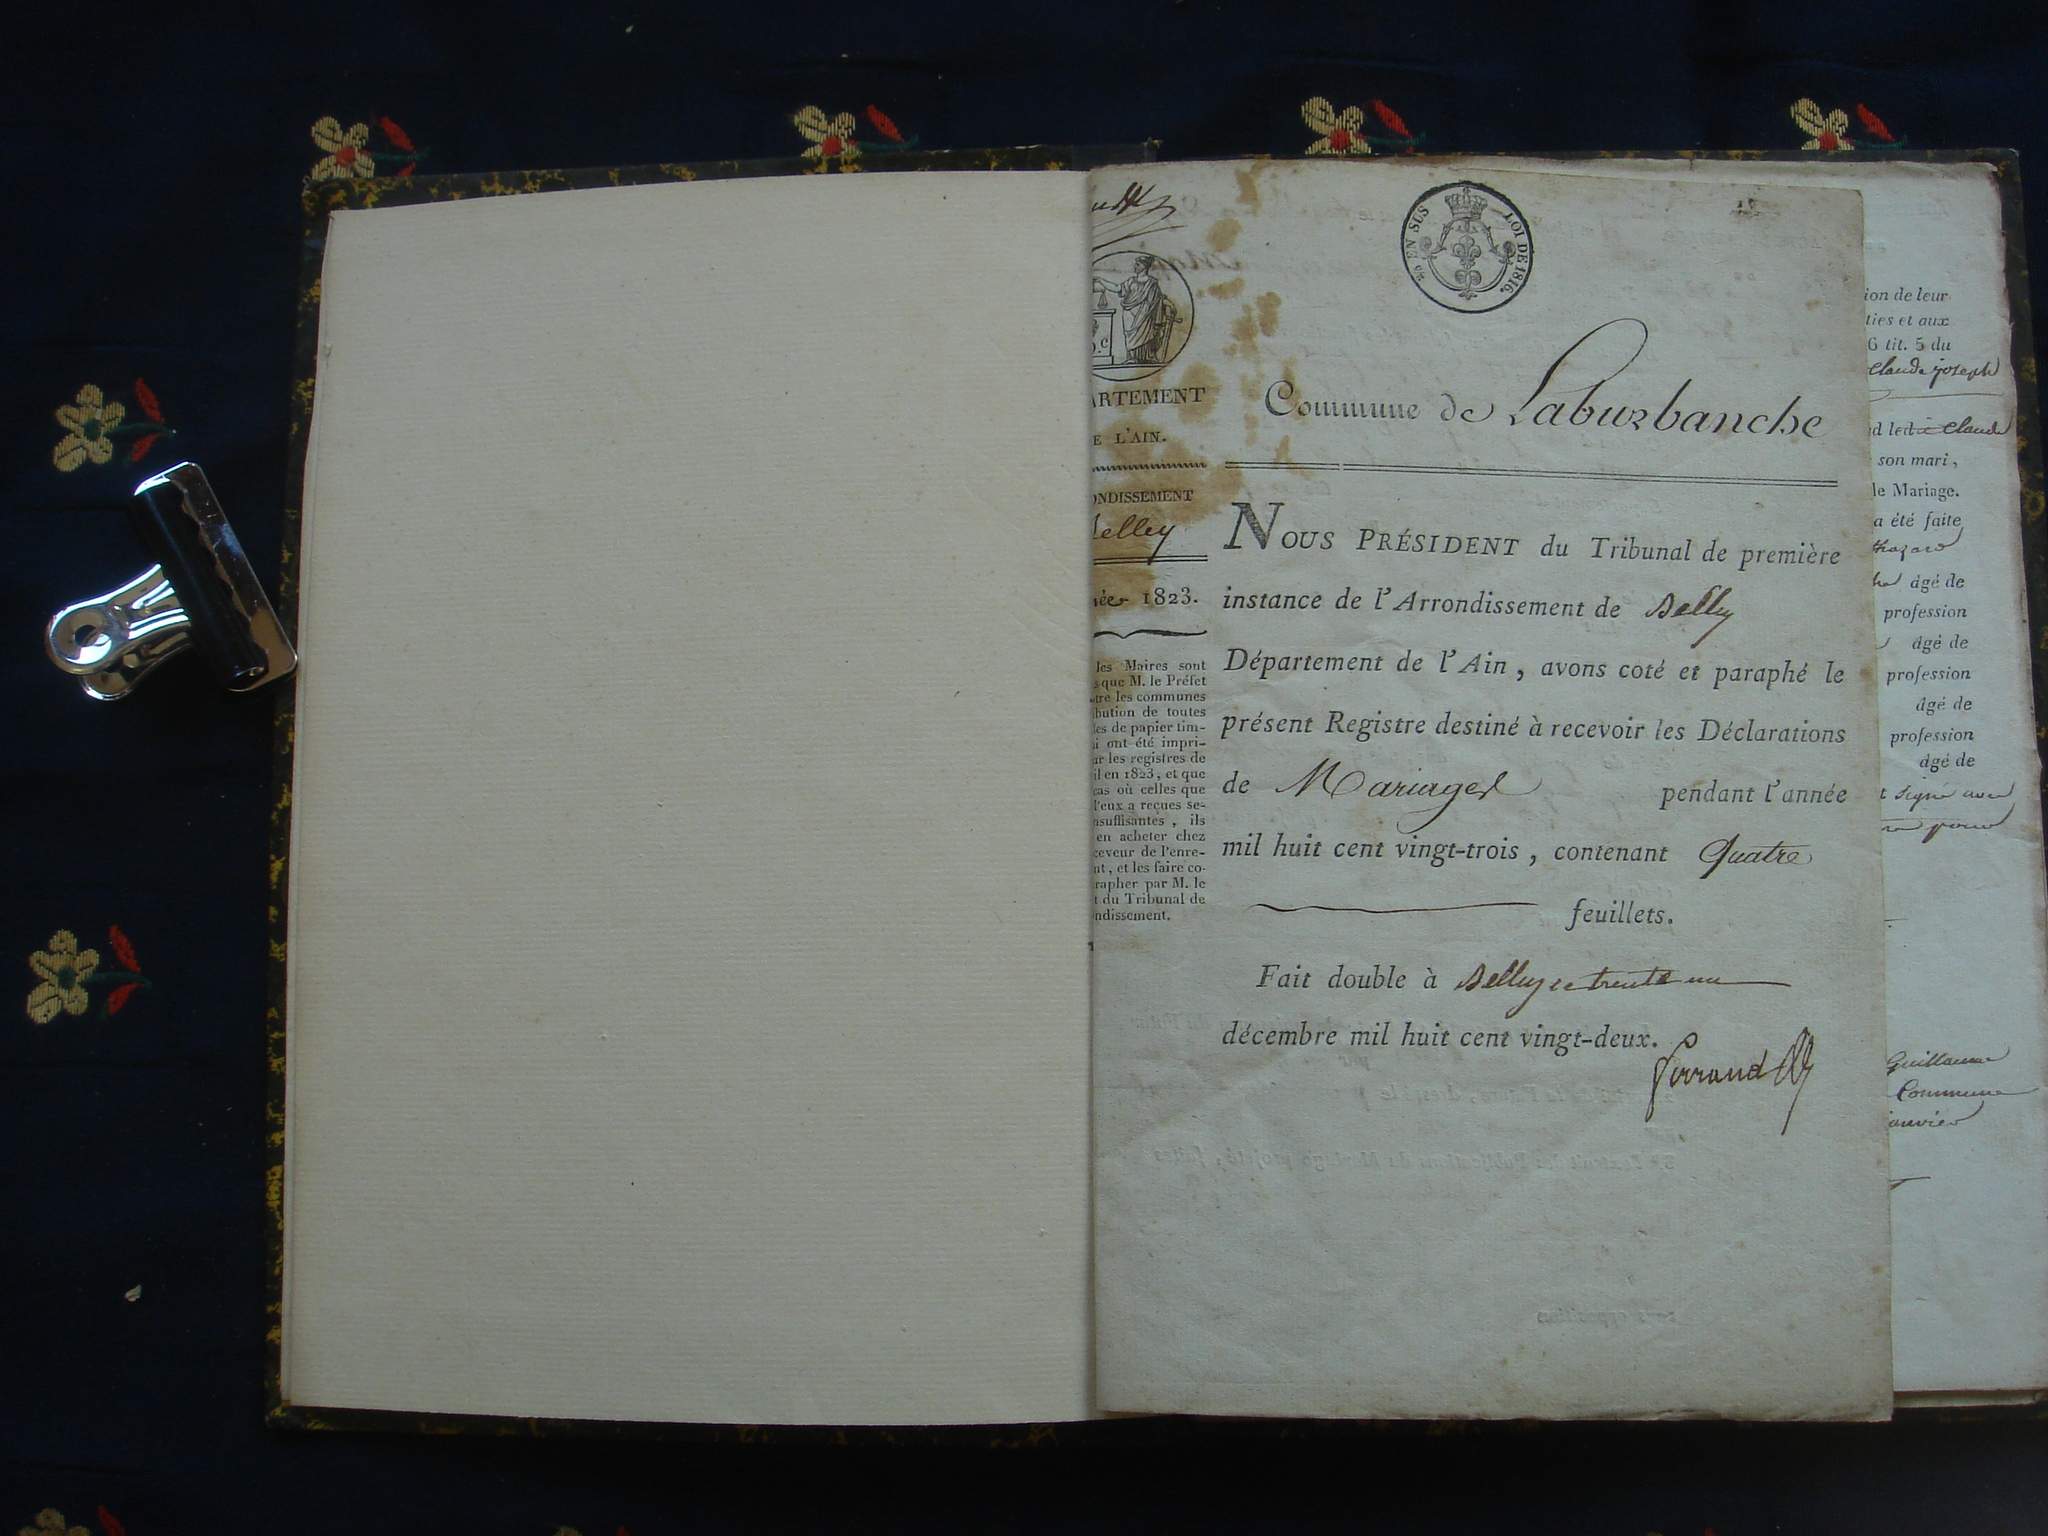 EN SUS
LOI DE 1816.
ARTEMENT
E L'AIN.
ONDISSEMENT
elley
ée 1823.
les Maires sont
s que M. le Préfet
tre les communes
ibution de toutes
les de papier tim-
i ont été impri-
ur les registres de
il en 1823, et que
cas où celles que
l'eux a reçues se-
nsuffisantes, ils
en acheter chez
ceveur de l'enre-
nt, et les faire co-
rapher par M. le
t du Tribunal de
ondissement.
Commune de Laburbanche
NOUS PRÉSIDENT du Tribunal de première
instance de l'Arrondissement de Belley
Département de l'Ain, avons coté et paraphé le
présent Registre destiné à recevoir les Déclarations
de Mariages pendant l'année
mil huit cent vingt-trois, contenant Quatre
feuillets.
Fait double à Belley le trente un
décembre mil huit cent vingt-deux.
ion de leur
ties et aux
6 tit. 5 du
Claude joseph
d ledit Claude
son mari,
le Mariage.
a été faite
thazard
âgé de
profession
âgé de
profession
âgé de
profession
âgé de
t signé avec
Guillaume
Commune
janvier